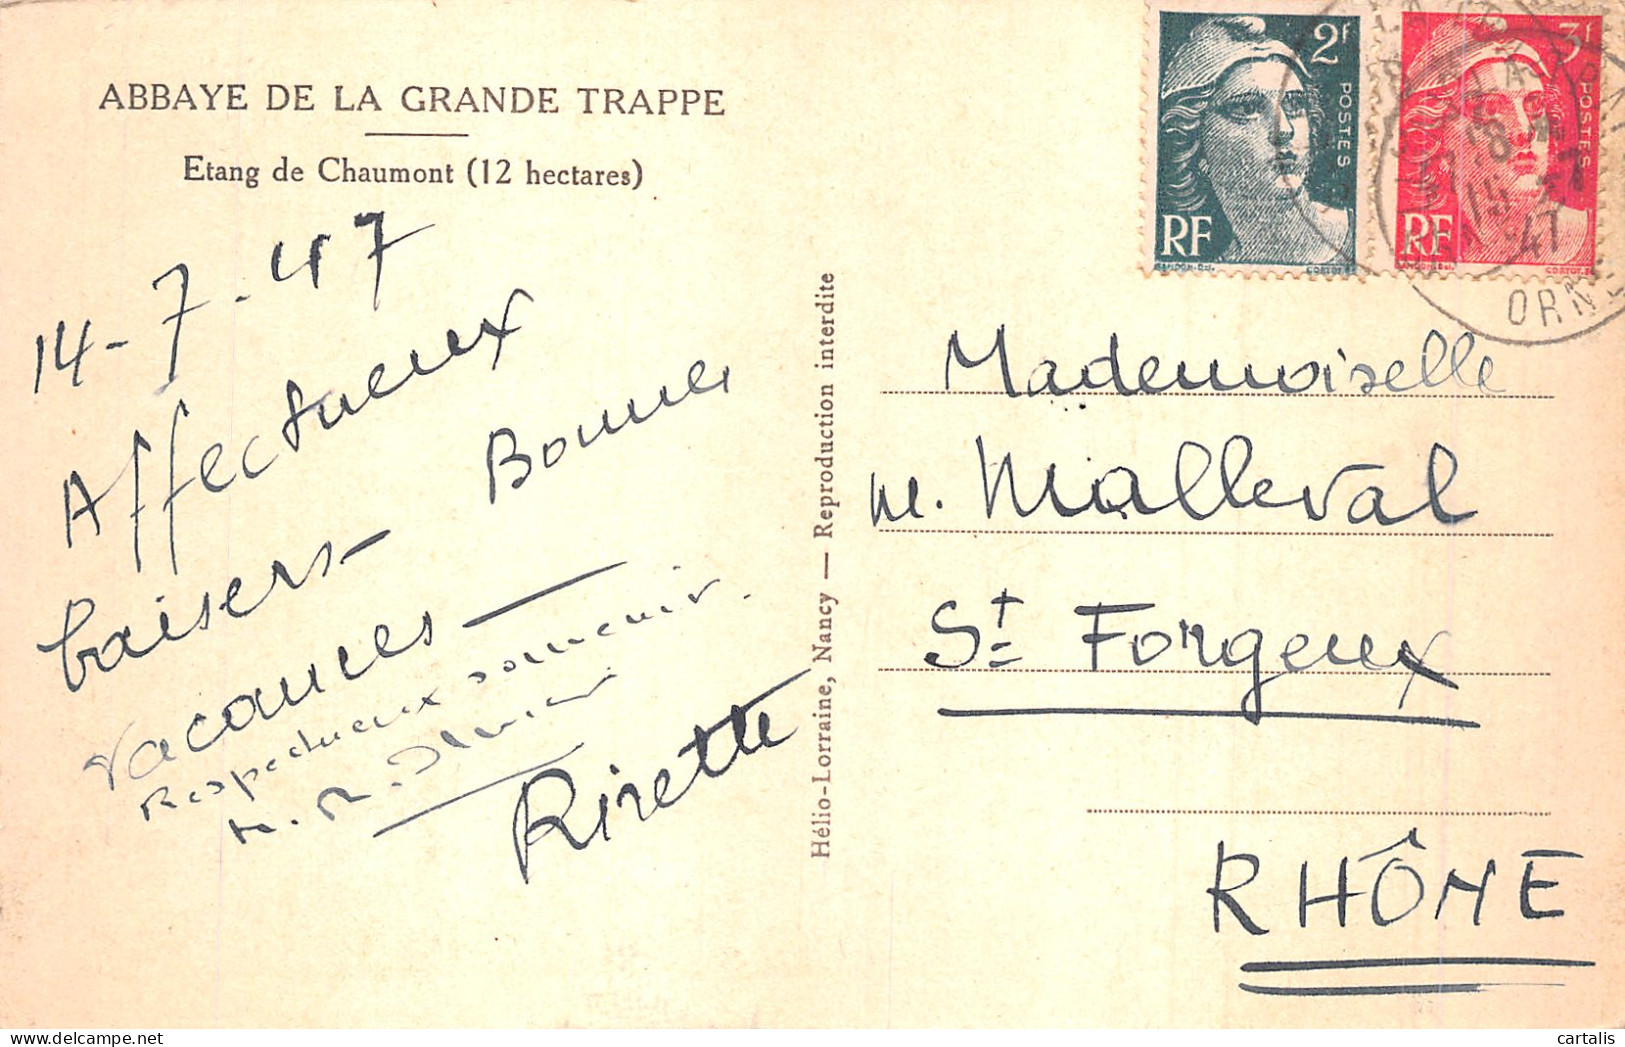 ABBAYE DE LA GRANDE TRAPPE
Etang de Chaumont (12 hectares)
14-7.47
Affectueux
baisers - Bonnes
vacances -
Respectueux souvenir.
Rirette
Hélio-Lorraine, Nancy — Reproduction interdite
2f
POSTES
RF
3f
POSTES
RF
18
15 -7
47
ORNE
Mademoiselle
M. Malleval
St Forgeux
RHÔNE
cartalis